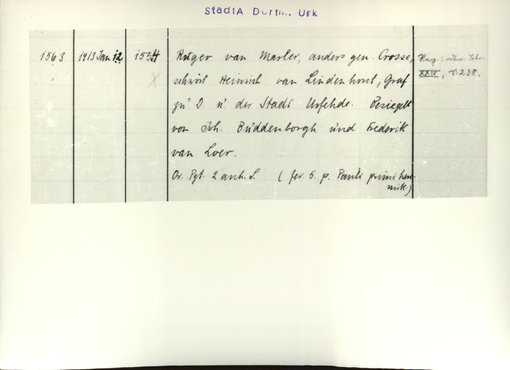 StadtA Dortm. Urk
1563 1413 Jan 12 1554 Rutger van Marler, anders gen. Crosse,
schwört Heinrich van Lindenhorst, Graf
zu D. u. der Stadt Urfehde. Besiegelt
von Joh. Buddenborgh und Frederik
van Loer.
Or. Pgt. 2 anh. S. (fer. 5. p. Pauli primi here
mitt.)
XXIV, S. 238.